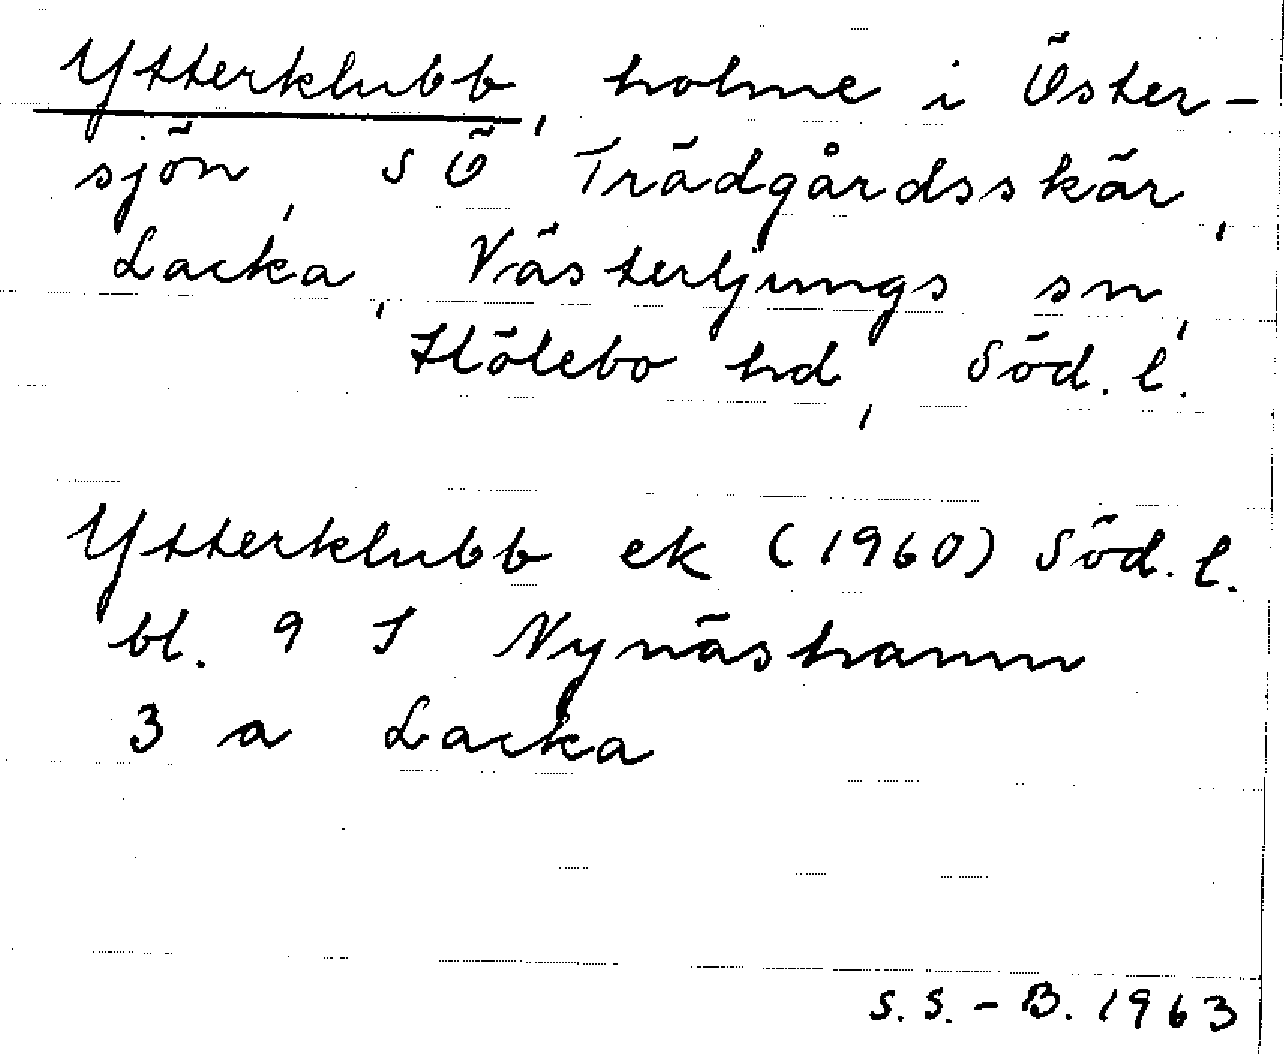 Ytterklubb, holme i Öster-
sjön, SÖ Trädgårdsskär,
Lacka, Västerljungs sn,
Hölebo hd, Söd. l.
Ytterklubb ek (1960) Söd. l.
bl. 9 S Nynäshamn
3 a Lacka
S. S. - B. 1963